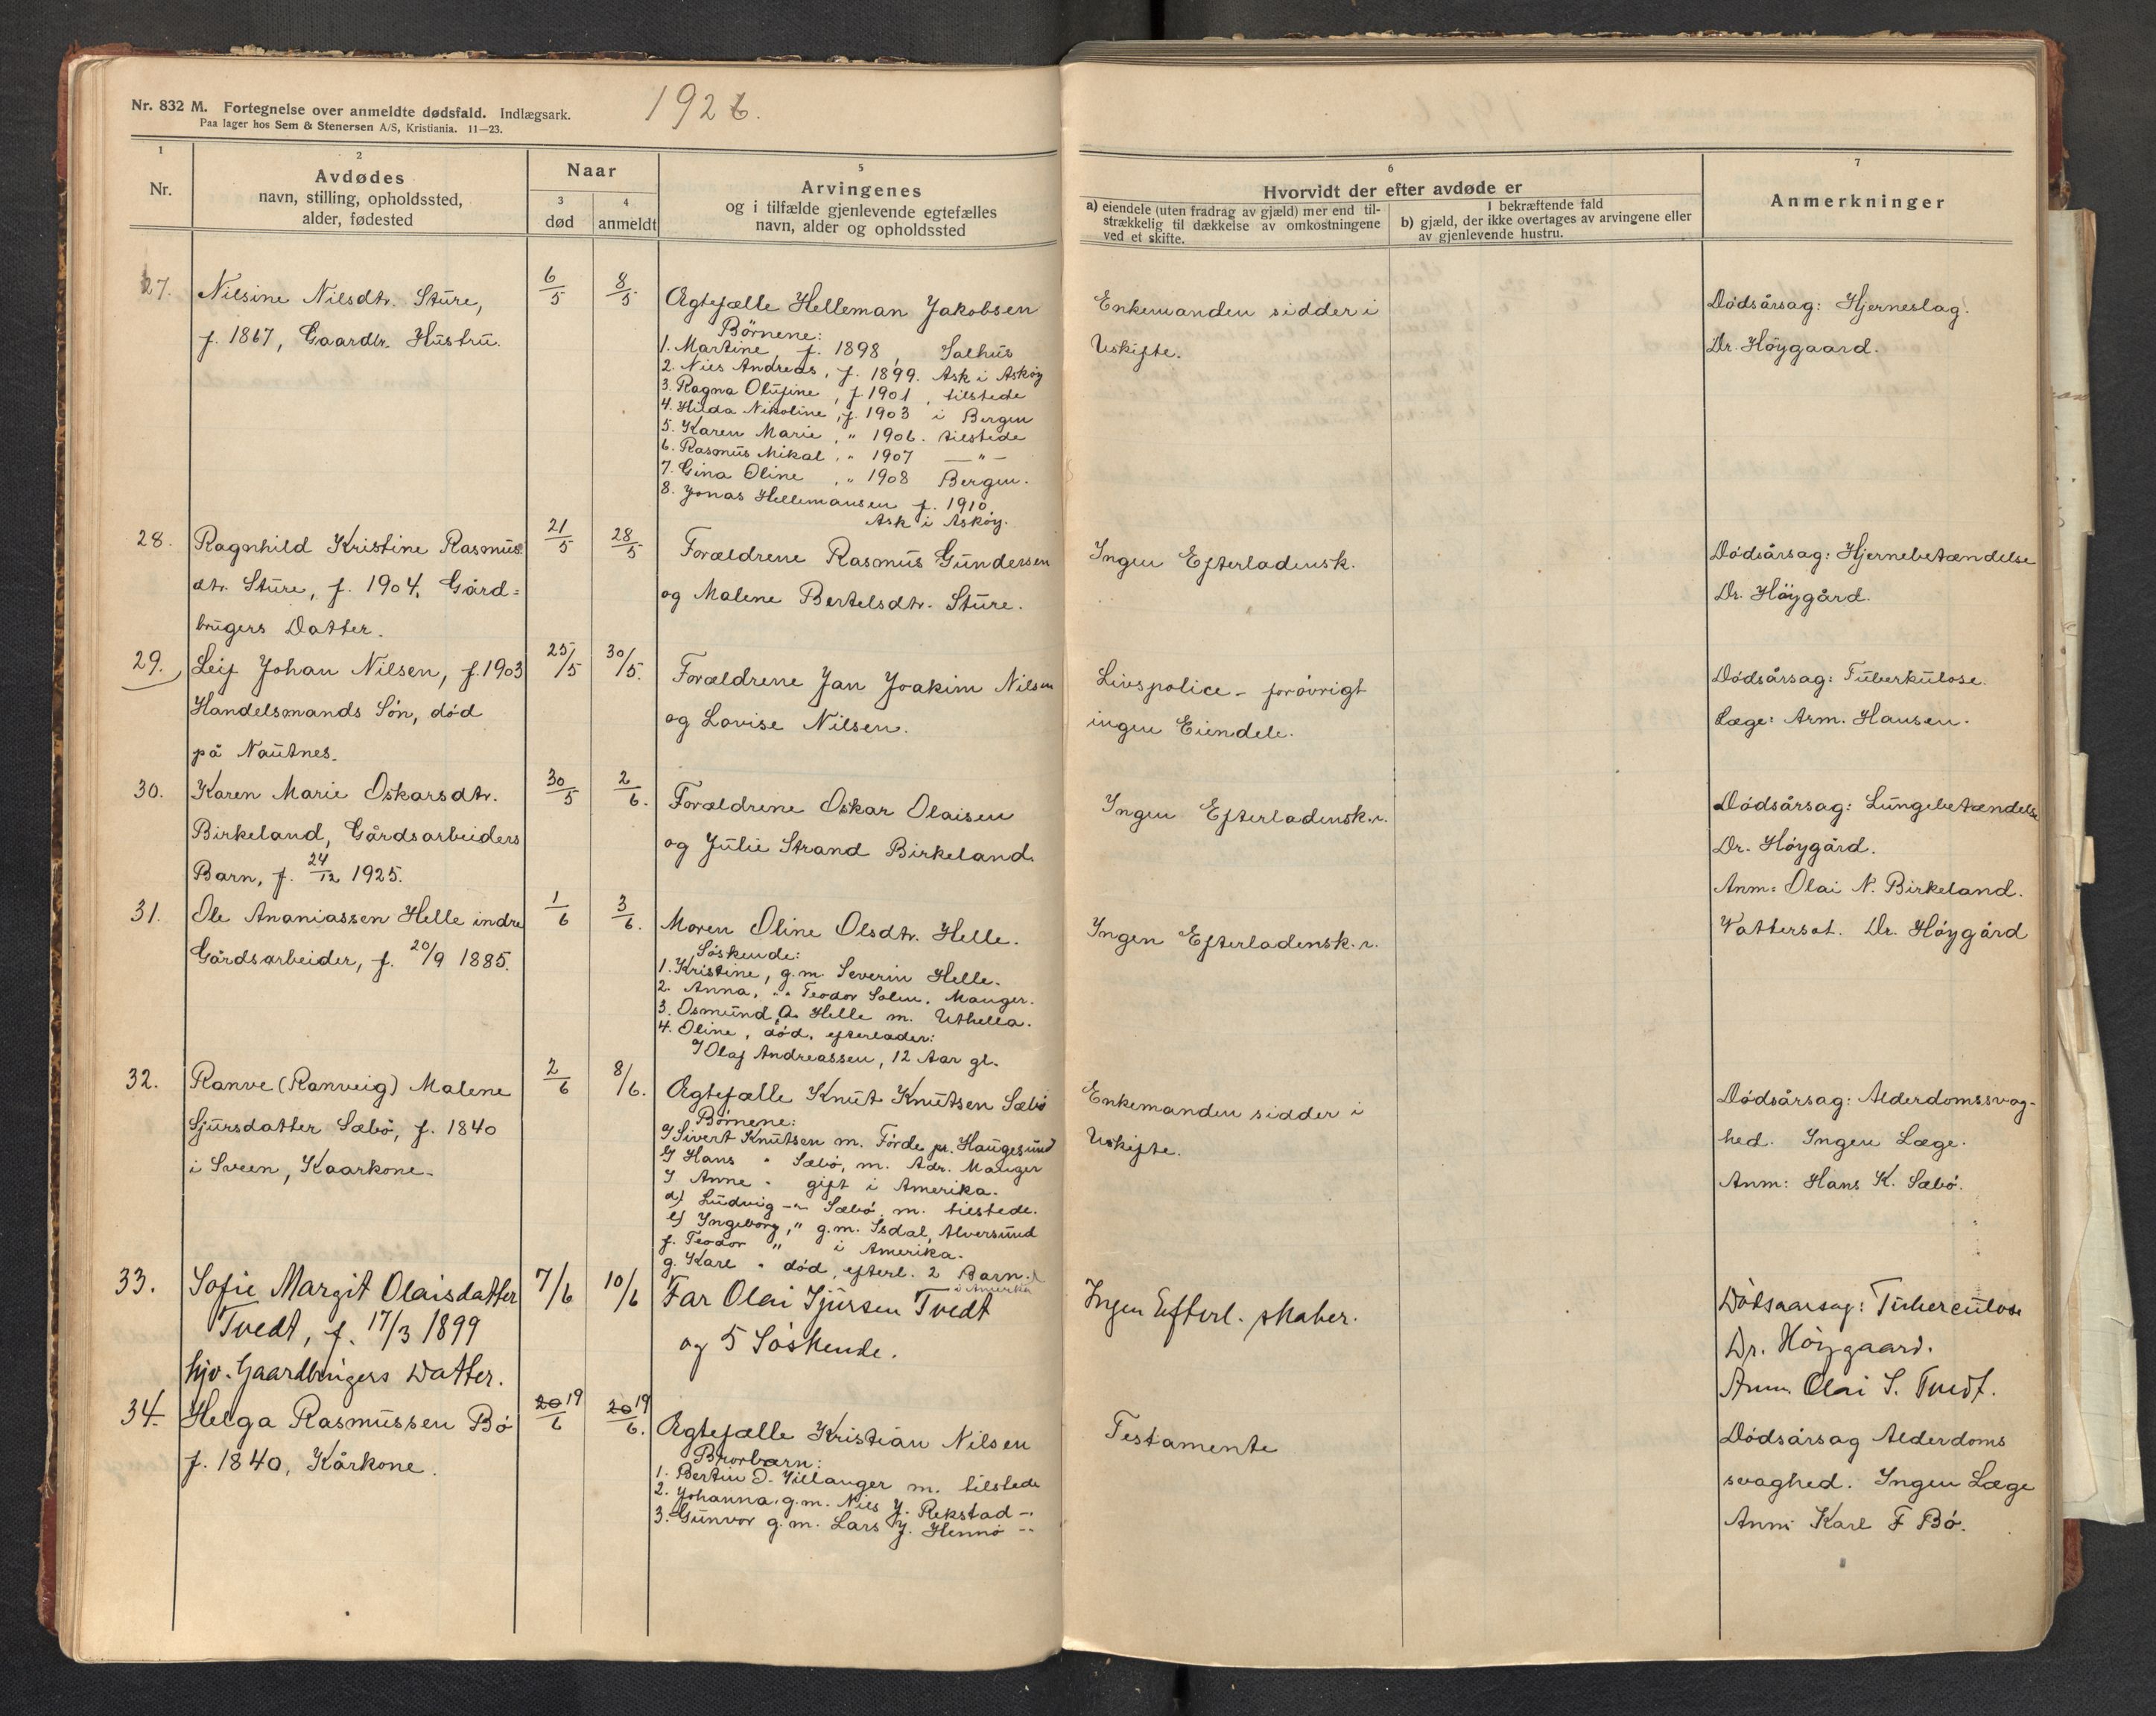 Nr. 832 M. Fortegnelse over anmeldte dødsfald. Indlægsark.
Paa lager hos Sem & Stenersen A/S, Kristiania. 11—23.
1926.
1
Nr.
2
Avdødes
navn, stilling, opholdssted,
alder, fødested
Naar
3
død
4
anmeldt
5
Arvingenes
og i tilfælde gjenlevende egtefælles
navn, alder og opholdssted
6
Hvorvidt der efter avdøde er
a) eiendele (uten fradrag av gjæld) mer end til-
strækkelig til dækkelse av omkostningene
ved et skifte.
I bekræftende fald
b) gjæld, der ikke overtages av arvingene eller
av gjenlevende hustru.
7
Anmerkninger
27.
Nilsine Nilsdtr. Sture,
f. 1867, Gaardbr. Hustru.
6/5
8/5
Ægtefælle Helleman Jakobsen
Børnene:
1. Martine f. 1898, Salhus
2. Nils Andreas, f. 1899. Ask i Askøy
3. Ragna Olufine, f 1901, tilstede
4. Hilda Nikoline, f. 1903 i Bergen
5. Karen Marie, " 1906. tilstede
6. Rasmus Mikal, " 1907 — " —
7. Gina Oline, " 1908 Bergen.
8. Jonas Hellemansen f. 1910,
Ask i Askøy.
Enkemanden sidder i
Uskifte.
Dødsårsag: Hjerneslag.
Dr. Höygaard.
28.
Ragnhild Kristine Rasmus
dtr. Sture, f. 1904, Gård=
brugers Datter.
21/5
28/5
Forældrene Rasmus Gundersen
og Malene Bertelsdtr. Sture.
Ingen Efterladensk.
Dødsårsag: Hjernebetændelse
Dr. Höygård.
29.
Leif Johan Nilsen, f. 1903
Handelsmands Søn, død
på Nautnes.
25/5
30/5.
Forældrene Jan Joakim Nilsen
og Lovise Nilsen.
Livspolice - forøvrigt
ingen Eiendele.
Dødsårsag: Tuberkulose.
Læge: Arm. Hansen.
30.
Karen Marie Oskarsdtr.
Birkeland, Gårdsarbeiders
Barn, f. 24/12 1925.
30/5
2/6.
Forældrene Oskar Olaisen
og Julie Strand Birkeland.
Ingen Efterladensk.r.
Dødsårsag: Lungebetændelse
Dr. Höygård.
Anm: Olai N. Birkeland.
31.
Ole Ananiassen Helle indre
Gårdsarbeider, f. 20/9 1885.
1/6
3/6.
Moren Oline Olsdtr. Helle.
Søskende:
1. Kristine, g.m. Severin Helle.
2. Anna, " " Teodor Solem, Manger.
3. Osmund A. Helle m. Uthella.
4. Oline, død, efterlader:
Olaf Andreassen, 12 Aar gl.
Ingen Efterladensk.r.
Vattersot. Dr. Höygård
32.
Ranve (Ranveig) Malene
Sjursdatter Sæbö, f. 1840
i Sveen, Kaarkone.
2/6
8/6.
Ægtefælle Knut Knutsen Sæbö
Børnene:
Sivert Knutsen m. Förde pr. Haugesund
Hans " Sæbö, m. Adr. Manger
Anne " gift i Amerika.
d) Ludvig -"- Sæbö, m. tilstede.
e) Ingeborg, " g.m. Isdal, Alversund
f. Teodor " i Amerika.
g. Karl " død, efterl. 2 Barn.
i Amerika
Enkemanden sidder i
Uskifte.
Dødsårsag: Alderdomssvag-
hed. Ingen Læge.
Anm: Hans K. Sæbö.
33.
Sofie Margit Olaisdatter
Tvedt, f. 17/3 1899
hjv. Gaardbrugers Datter.
7/6
10/6
Far Olai Sjursen Tvedt
og 5 Söskende.
Ingen Efterl. skaber.
Dödsaarsag: Tuberculose
Dr. Höygaard.
Anm. Olai S. Tvedt.
34.
Helga Rasmussen Bö
f. 1840, Kårkone.
20 19/6
20 19/6.
Ægtefælle Kristian Nilsen
Brorbarn:
1. Bertin D. Villanger m. tilstede
2. Johanna, g.m. Nils J. Rekstad -"-
3. Gunvor g.m. Lars J. Hennö -"-
Testamente
Dødsårsag Alderdoms
svaghed. Ingen Læge
Anm: Karl F Bö.